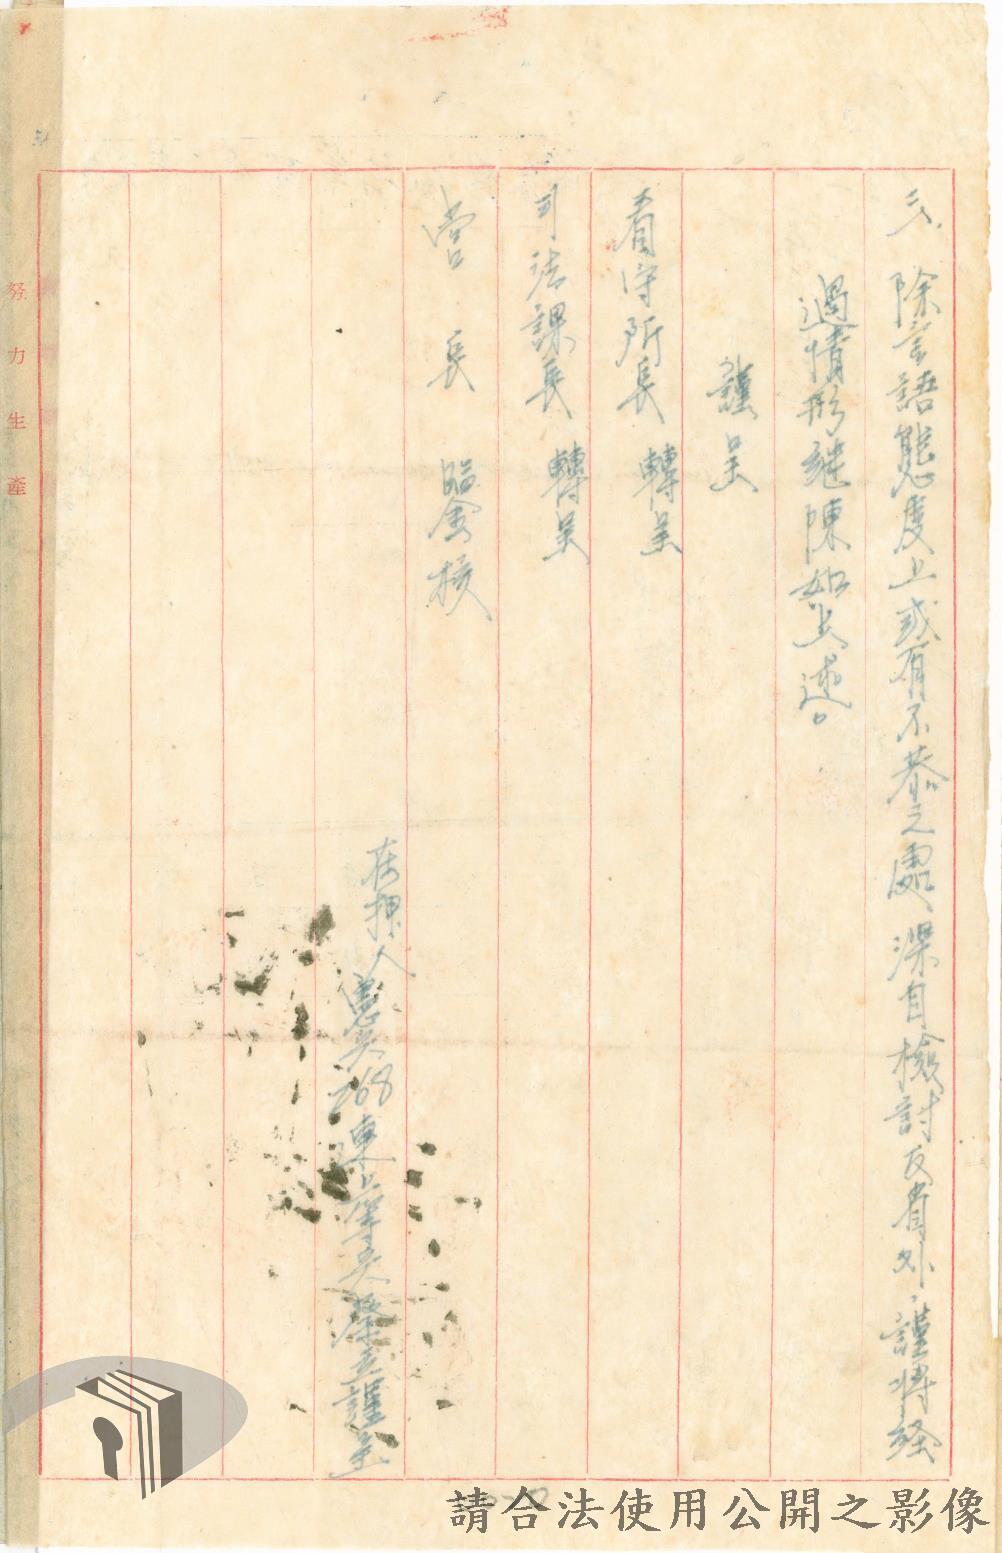 三、除言語態度上或有不恭之處、深自檢討反省外、謹將經
過情形継陳如上述。
謹呈
看守所長 轉呈
司法課長 轉呈
營長 鑒核
在押人憲兵268連上等兵蔡 謹呈
努力生產
請合法使用公開之影像